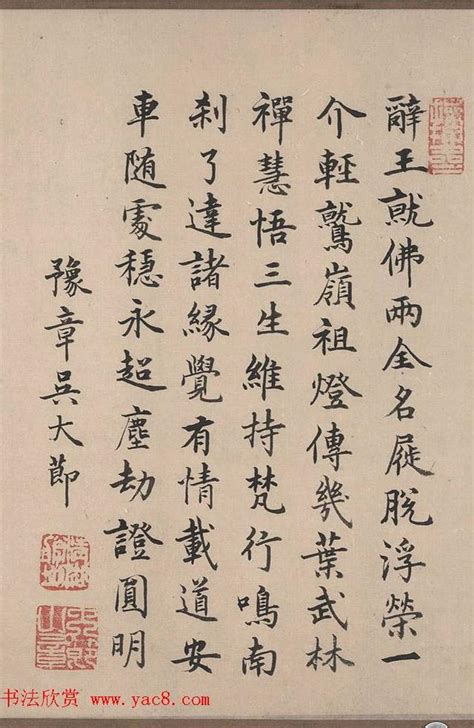 辭王就佛兩全名屣脫浮榮一
介輕鷲嶺祖燈傳幾葉武林
禪慧悟三生維持梵行鳴南
剎了達諸緣覺有情載道安
車随處穩永超塵劫證圓明
豫章吳大節
书法欣赏 www.yac8.com